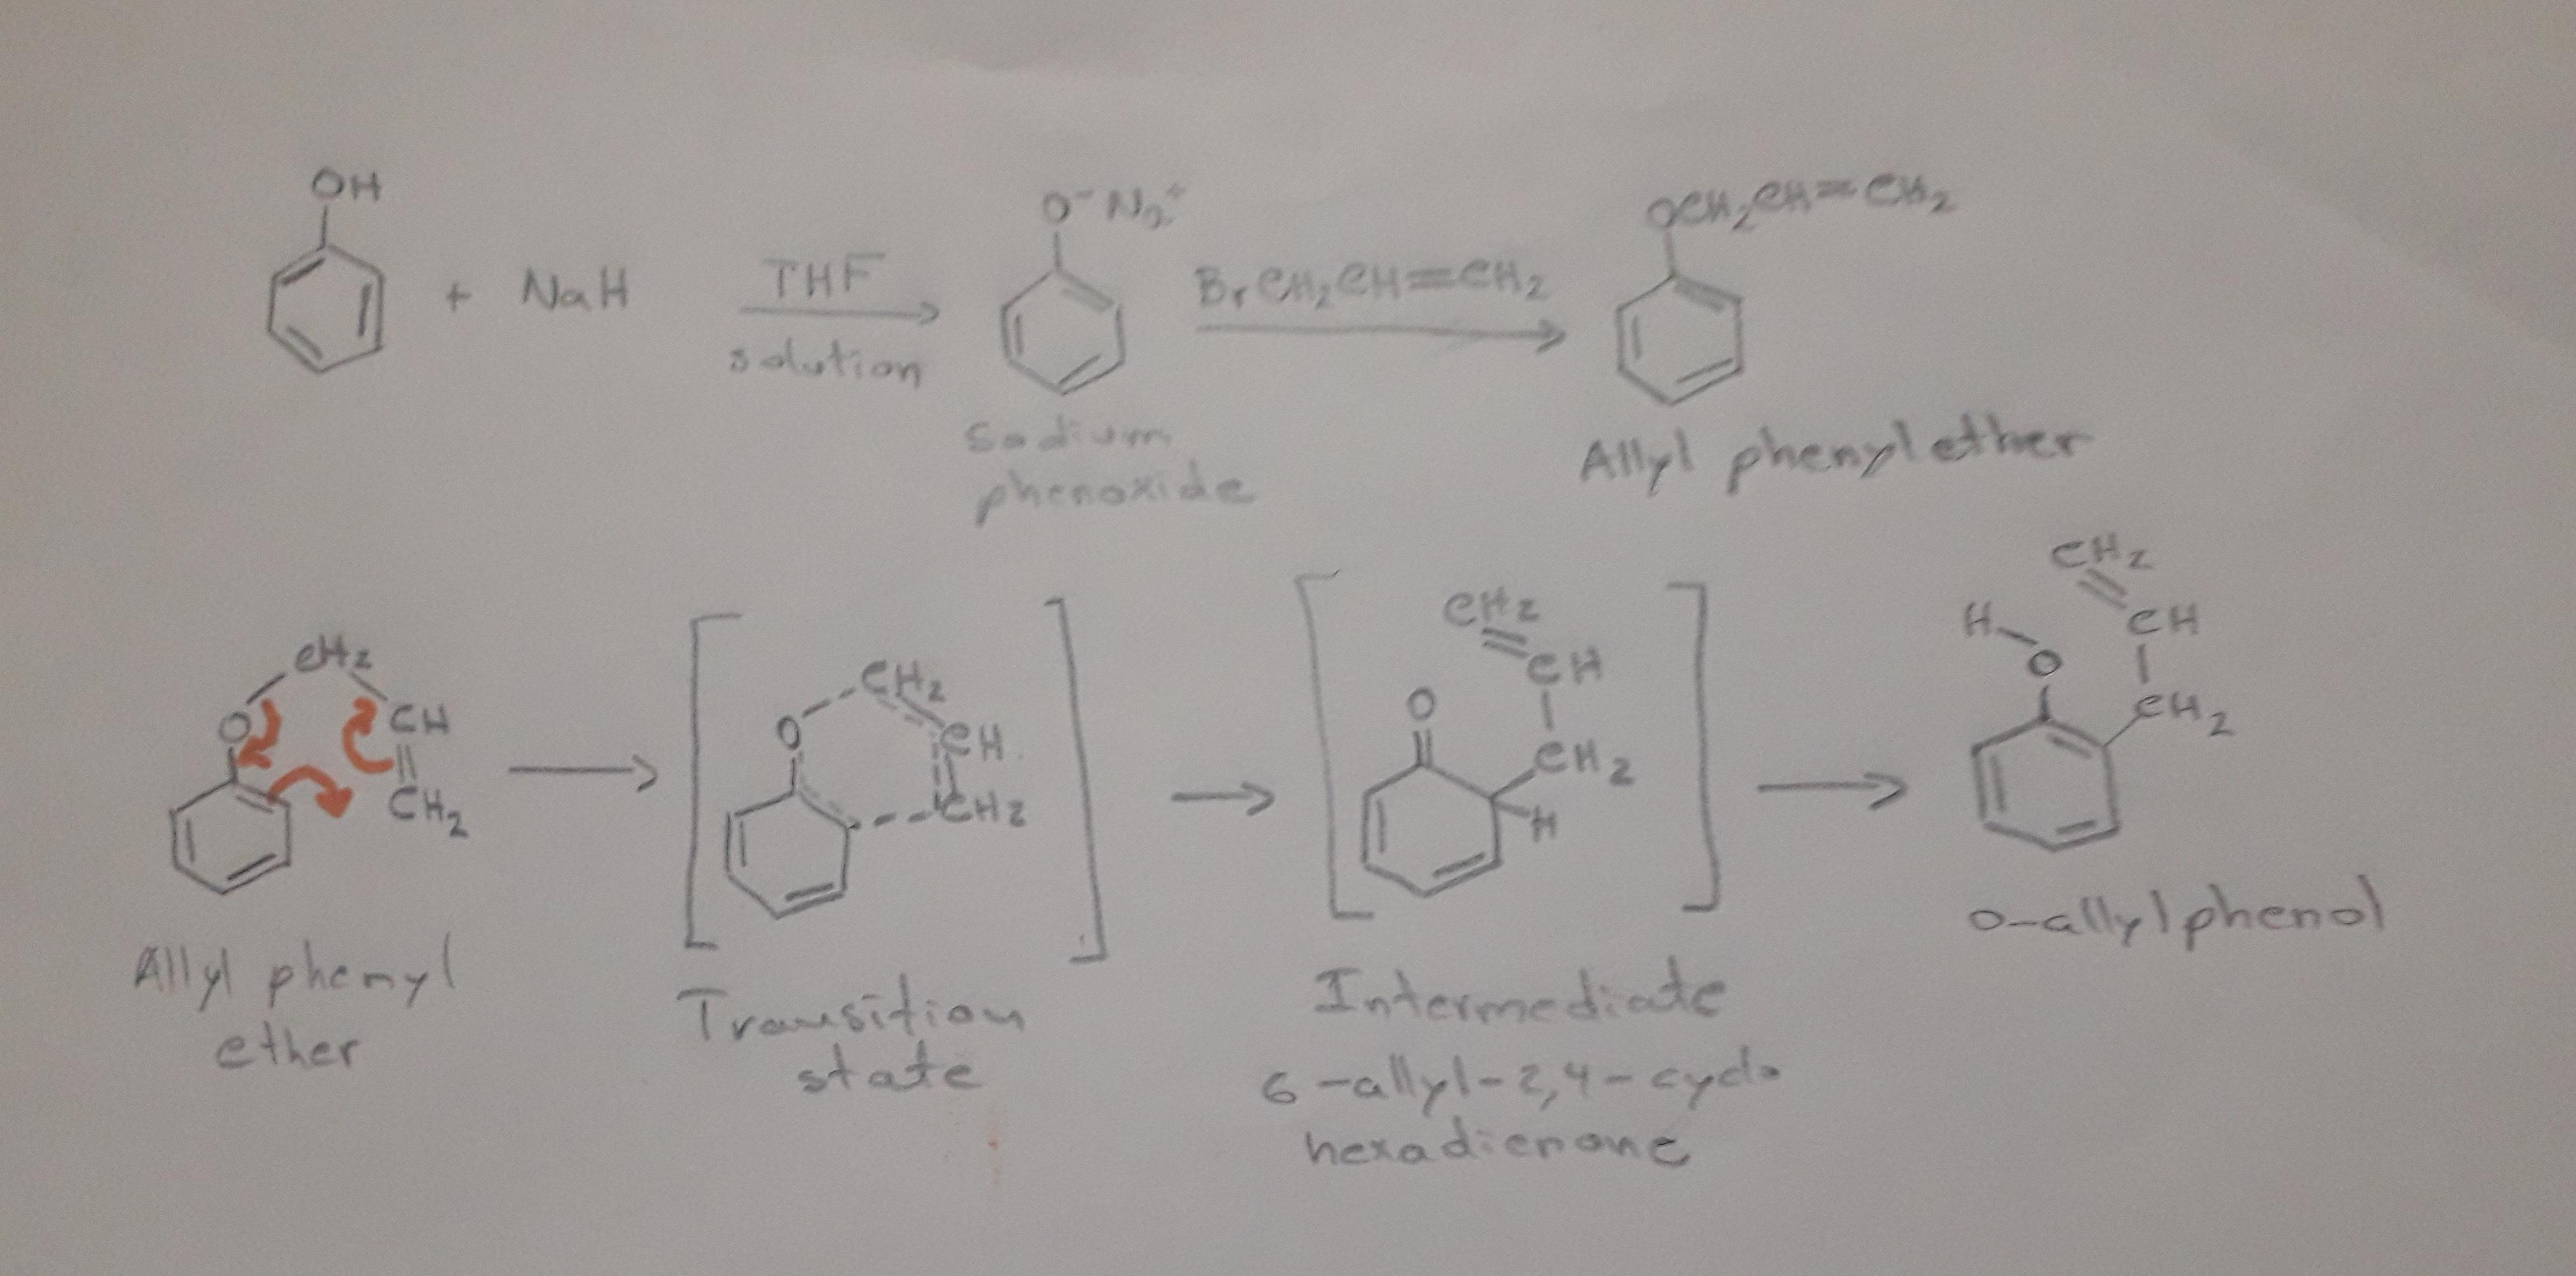 OH
+ NaH
THF
solution
O⁻ Na⁺
Sodium
phenoxide
BrCH₂CH=CH₂
OCH₂CH=CH₂
Allyl phenyl ether
CH₂
O
CH
CH₂
Allyl phenyl
ether
CH₂
O
CH
CH₂
Transition
state
CH₂
CH
O
CH₂
H
Intermediate
6-allyl-2,4-cyclo
hexadienone
CH₂
H
CH
O
CH₂
o-allylphenol